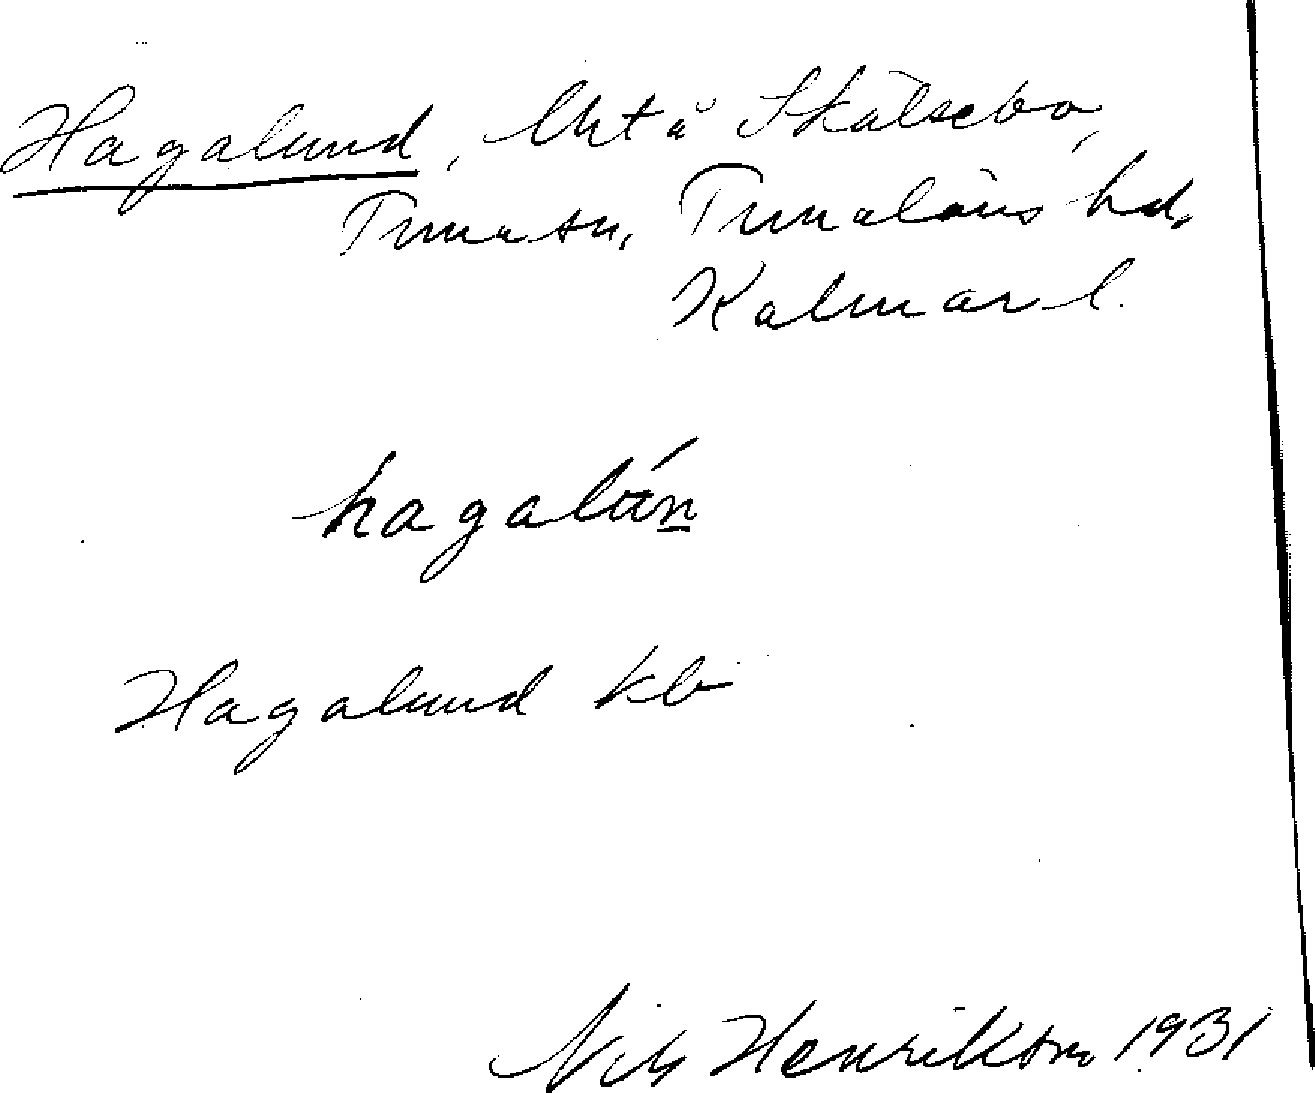 Hagalund, lht å Skälsebo,
Tuna sn, Tunaläns hd,
Kalmar l.
hagalún
Hagalund kb
Nils Henrikson 1931